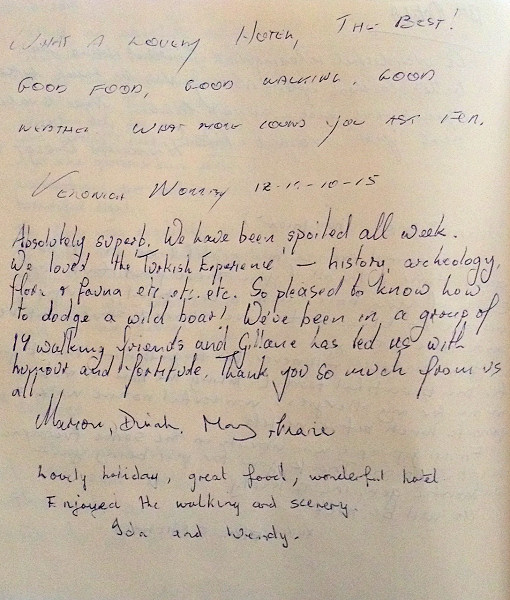 WHAT A LOVELY HOTEL, THE BEST!
GOOD FOOD, GOOD WALKING, GOOD
WEATHER WHAT MORE COULD YOU ASK FER.
VERONICA 12-10-15
Absolutely superb. We have been spoiled all week.
We loved 'the Turkish Experience' – history, archeology,
flora & fauna etc. etc. etc. So pleased to know how
to dodge a wild boar! We've been in a group of
14 walking friends and has led us with
humour and fortitude. Thank you so much from us
all
Marion, Dinah, May
Lovely holiday, great food, wonderful hotel
Enjoyed the walking and scenery.
and Wendy.